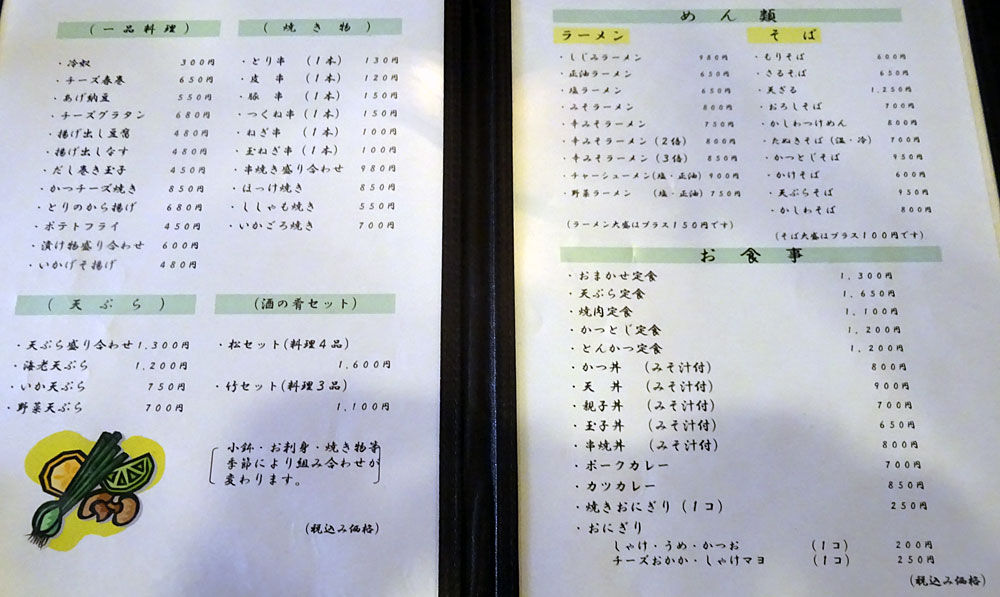 (一品料理)
・冷奴 300円
・チーズ春巻 650円
・あげ納豆 550円
・チーズグラタン 680円
・揚げ出し豆腐 480円
・揚げ出しなす 480円
・だし巻き玉子 450円
・かつチーズ焼き 850円
・とりのから揚げ 680円
・ポテトフライ 450円
・漬け物盛り合わせ 600円
・いかげそ揚げ 480円
(焼き物)
・とり串 (1本) 130円
・皮串 (1本) 120円
・豚串 (1本) 150円
・つくね串 (1本) 150円
・ねぎ串 (1本) 100円
・玉ねぎ串 (1本) 100円
・串焼き盛り合わせ 980円
・ほっけ焼き 850円
・ししゃも焼き 550円
・いかごろ焼き 700円
(天ぷら)
・天ぷら盛り合わせ 1,300円
・海老天ぷら 1,200円
・いか天ぷら 750円
・野菜天ぷら 700円
(酒の肴セット)
・松セット(料理4品)
1,600円
・竹セット(料理3品)
1,100円
小鉢・お刺身・焼き物等
季節により組み合わせが
変わります。
(税込み価格)
めん類
ラーメン
・しじみラーメン 980円
・正油ラーメン 650円
・塩ラーメン 650円
・みそラーメン 800円
・辛みそラーメン 750円
・辛みそラーメン(2倍) 800円
・辛みそラーメン(3倍) 850円
・チャーシューメン(塩・正油) 900円
・野菜ラーメン (塩・正油) 750円
(ラーメン大盛はプラス150円です)
そば
・もりそば 600円
・ざるそば 650円
・天ざる 1,250円
・おろしそば 700円
・かしわつけめん 800円
・たぬきそば(温・冷) 700円
・かつとじそば 950円
・かけそば 600円
・天ぷらそば 950円
・かしわそば 800円
(そば大盛はプラス100円です)
お食事
・おまかせ定食 1,300円
・天ぷら定食 1,650円
・焼肉定食 1,100円
・かつとじ定食 1,200円
・とんかつ定食 1,200円
・かつ丼 (みそ汁付) 800円
・天丼 (みそ汁付) 900円
・親子丼 (みそ汁付) 700円
・玉子丼 (みそ汁付) 650円
・串焼丼 (みそ汁付) 800円
・ポークカレー 700円
・カツカレー 850円
・焼きおにぎり(1コ) 250円
・おにぎり
しゃけ・うめ・かつお (1コ) 200円
チーズおかか・しゃけマヨ (1コ) 250円
(税込み価格)